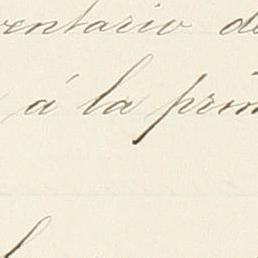 entario de
á la prim